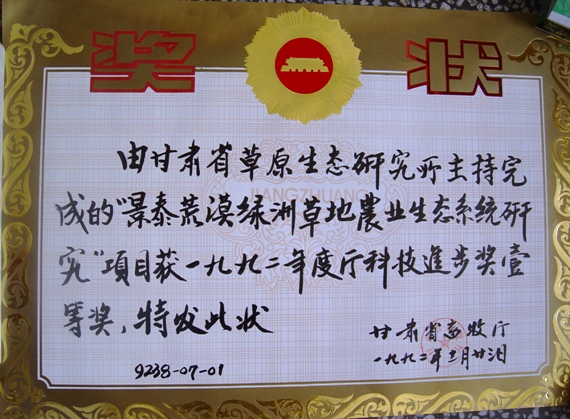 奖 状
由甘肃省草原生态研究所主持完
成的"景泰荒漠绿洲草地農业生态系统研
究"项目获一九九二年度厅科技進步奖壹
等奖，特发此状
JIANGZHUANG
甘肃省畜牧厅
一九九二年十二月廿
9238-07-01